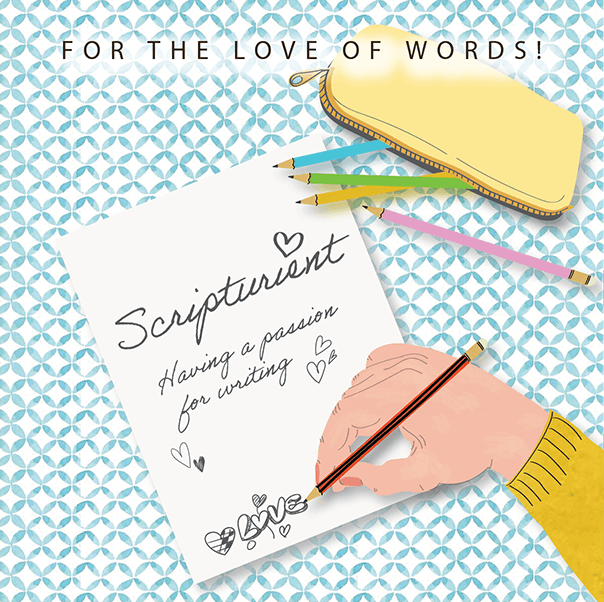 FOR THE LOVE OF WORDS!
Scripturient
Having a passion
for writing
LOVE